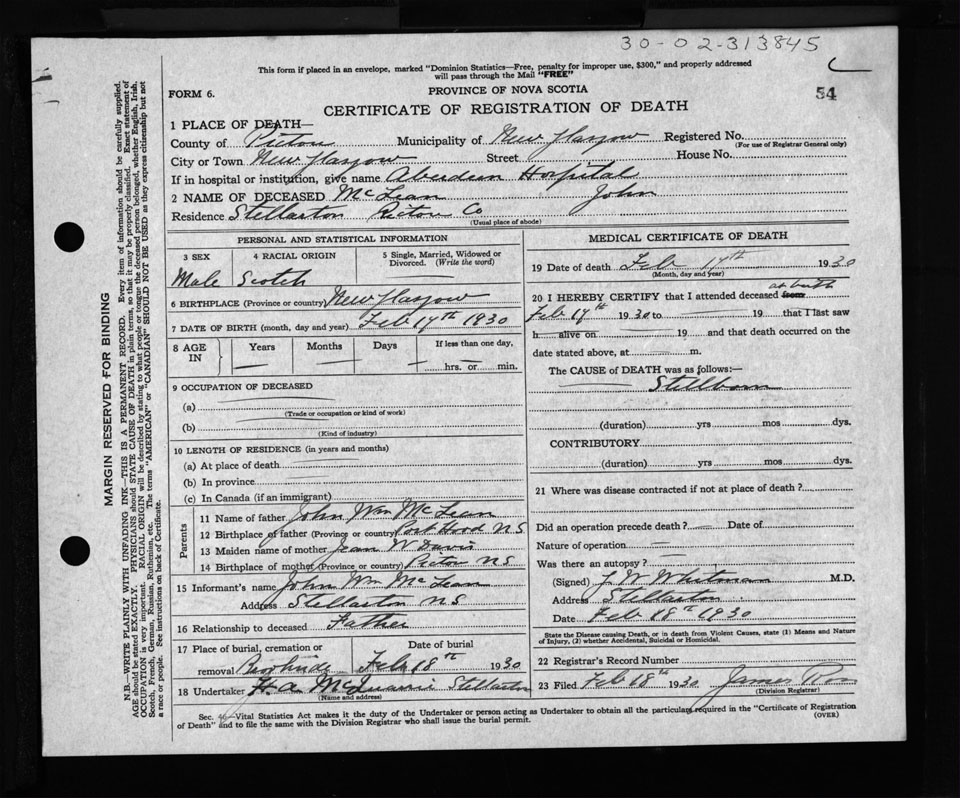 30-02-313845
This form if placed in an envelope, marked "Dominion Statistics—Free, penalty for improper use, $300," and properly addressed
will pass through the Mail "FREE"
54
FORM 6.
PROVINCE OF NOVA SCOTIA
CERTIFICATE OF REGISTRATION OF DEATH
1 PLACE OF DEATH—
County of Pictou Municipality of New Glasgow Registered No.
(For use of Registrar General only)
City or Town New Glasgow Street House No.
If in hospital or institution, give name Aberdeen Hospital
2 NAME OF DECEASED McLean John
Residence Stellarton Pictou Co
(Usual place of abode)
PERSONAL AND STATISTICAL INFORMATION
3 SEX 4 RACIAL ORIGIN 5 Single, Married, Widowed or Divorced. (Write the word)
Male Scotch
6 BIRTHPLACE (Province or country) New Glasgow
7 DATE OF BIRTH (month, day and year) Feb 17th 1930
8 AGE IN Years Months Days If less than one day,
hrs. or min.
9 OCCUPATION OF DECEASED
(a)
(Trade or occupation or kind of work)
(b)
(Kind of industry)
10 LENGTH OF RESIDENCE (in years and months)
(a) At place of death
(b) In province
(c) In Canada (if an immigrant)
Parents
11 Name of father John Wm McLean
12 Birthplace of father (Province or country) Port Hood N S
13 Maiden name of mother Jean W Davis
14 Birthplace of mother (Province or country) Pictou N S
15 Informant's name John Wm McLean
Address Stellarton N S
16 Relationship to deceased Father
17 Place of burial, cremation or Date of burial
removal Feb 18th 1930
18 Undertaker H. A. McQuarrie Stellarton
(Name and address)
MEDICAL CERTIFICATE OF DEATH
19 Date of death Feb 17th 1930
(Month, day and year)
at birth
20 I HEREBY CERTIFY that I attended deceased from
Feb 17th 1930 to 19 that I last saw
h alive on 19 and that death occurred on the
date stated above, at m.
The CAUSE of DEATH was as follows:—
Stillborn
(duration) yrs mos dys.
CONTRIBUTORY
(duration) yrs mos dys.
21 Where was disease contracted if not at place of death?
Did an operation precede death? Date of
Nature of operation
Was there an autopsy?
(Signed) J. W. Whitman M.D.
Address Stellarton
Date Feb 18th 1930
State the Disease causing Death, or in death from Violent Causes, state (1) Means and Nature
of Injury, (2) whether Accidental, Suicidal or Homicidal.
22 Registrar's Record Number
23 Filed Feb 18th 1930 James Ross
(Division Registrar)
Sec. —Vital Statistics Act makes it the duty of the Undertaker or person acting as Undertaker to obtain all the particulars required in the "Certificate of Registration
of Death" and to file the same with the Division Registrar who shall issue the burial permit. (OVER)
MARGIN RESERVED FOR BINDING
N.B.—WRITE PLAINLY WITH UNFADING INK—THIS IS A PERMANENT RECORD. Every item of information should be carefully supplied.
AGE should be stated EXACTLY. PHYSICIANS should STATE CAUSE OF DEATH in plain terms, so that it may be properly classified. Exact statement of
OCCUPATION is very important. RACIAL ORIGIN will be described by stating to what people or tongue the deceased person belonged, whether English, Irish,
Scotch, French, German, Russian, Ruthenian, etc. The terms "AMERICAN" or "CANADIAN" SHOULD NOT BE USED as they express citizenship but not
a race or people. See instructions on back of Certificate.